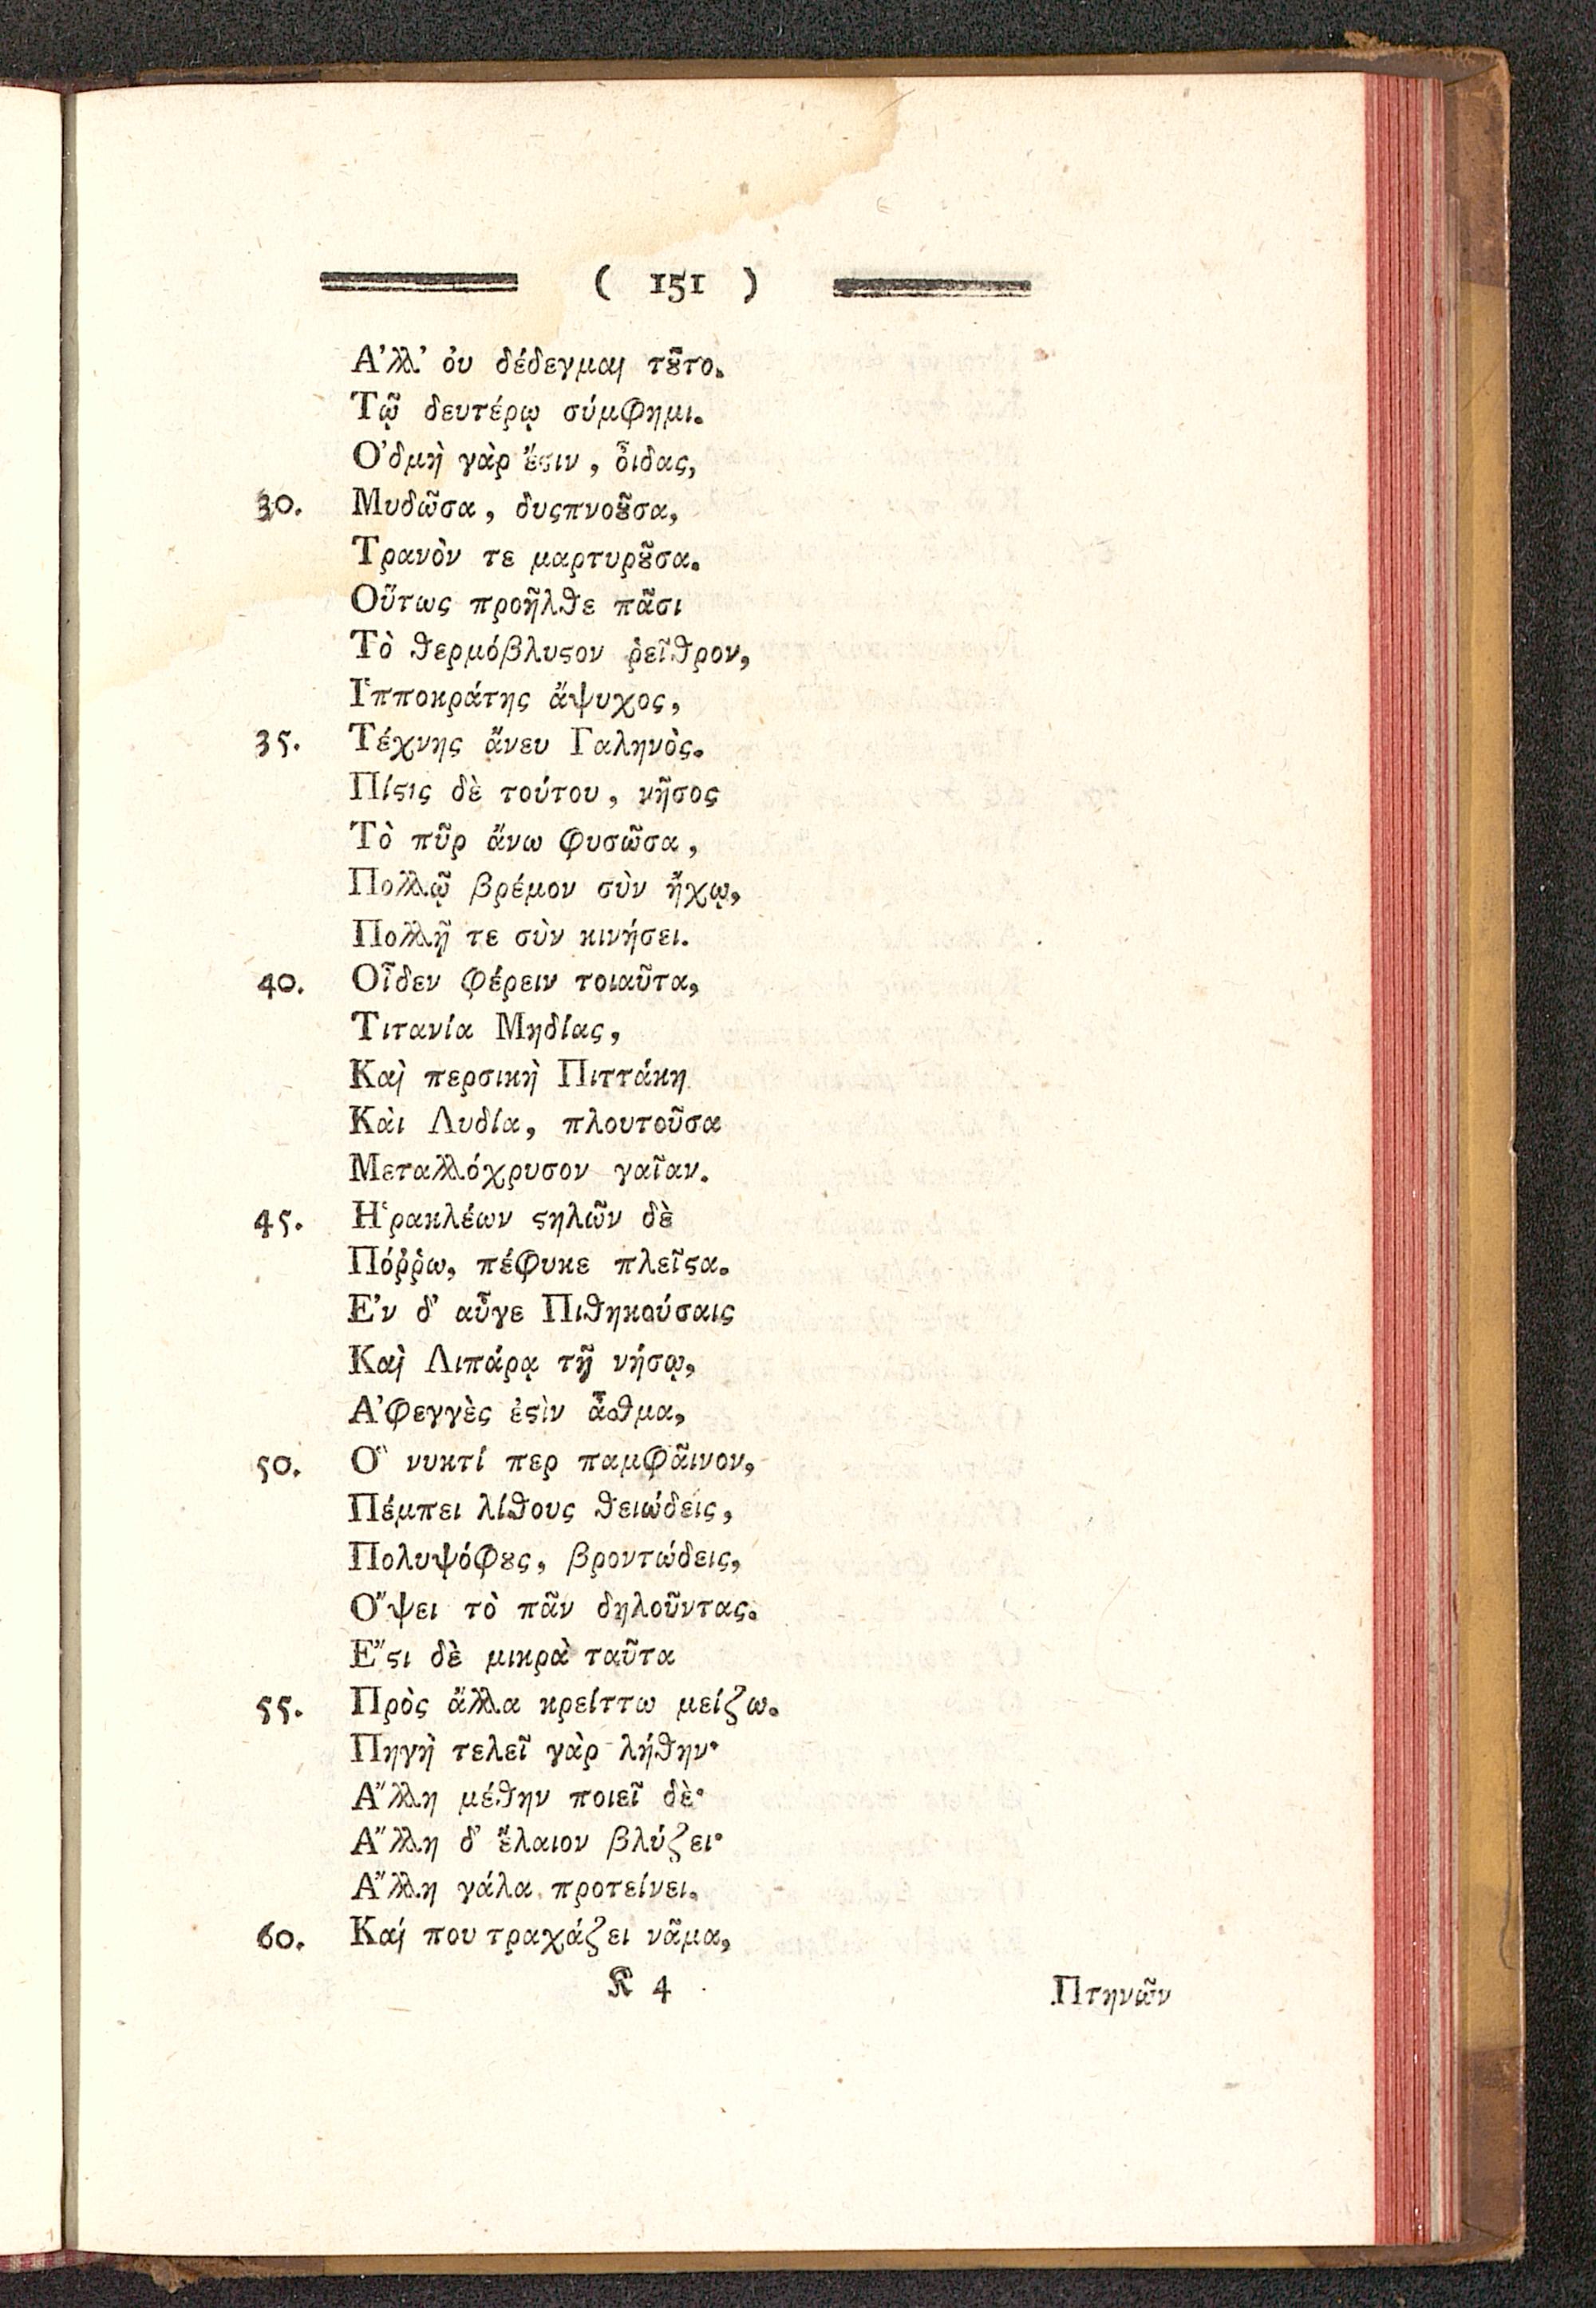 ( 151 )
Ἀλλ' ὀυ δέδεγμαι τȣ͂το.
Τῷ δευτέρῳ σύμφημι.
Ὀδμὴ γὰρ ἔϛιν, ὄιδας,
30. Μυδῶσα, δυςπνοȣ͂σα,
Τρανὸν τε μαρτυρȣ͂σα.
Οὕτως προῆλθε πᾶσι
Τὸ θερμόβλυϛον ῥεῖθρον,
Ἱπποκράτης ἄψυχος,
35. Τέχνης ἄνευ Γαληνὸς.
Πίϛις δὲ τούτου, νῆσος
Τὸ πῦρ ἄνω φυσῶσα,
Πολλῷ βρέμον σὺν ἤχῳ,
Πολλῇ τε σὺν κινήσει.
40. Οἶδεν φέρειν τοιαῦτα,
Τιτανία Μηδίας,
Καὶ περσικὴ Πιττάκη
Κὰι Λυδία, πλουτοῦσα
Μεταλλόχρυσον γαῖαν.
45. Ἡρακλέων ϛηλῶν δὲ
Πόῤῥω, πέφυκε πλεῖϛα.
Ἐν δ' αὖγε Πιθηκούσαις
Καὶ Λιπάρᾳ τῇ νήσῳ,
Ἀφεγγὲς ἐϛὶν ἆσθμα,
50. Ὃ νυκτί περ παμφᾶινον,
Πέμπει λίθους θειώδεις,
Πολυψόφȣς, βροντώδεις,
Ὄψει τὸ πᾶν δηλοῦντας.
Ἔϛι δὲ μικρὰ ταῦτα
55. Πρὸς ἄλλα κρείττω μείζω.
Πηγὴ τελεῖ γὰρ λήθην·
Ἄλλη μέθην ποιεῖ δὲ·
Ἄλλη δ' ἔλαιον βλύζει·
Ἄλλη γάλα προτείνει.
60. Καί που τραχάζει νᾶμα,
K 4 Πτηνῶν